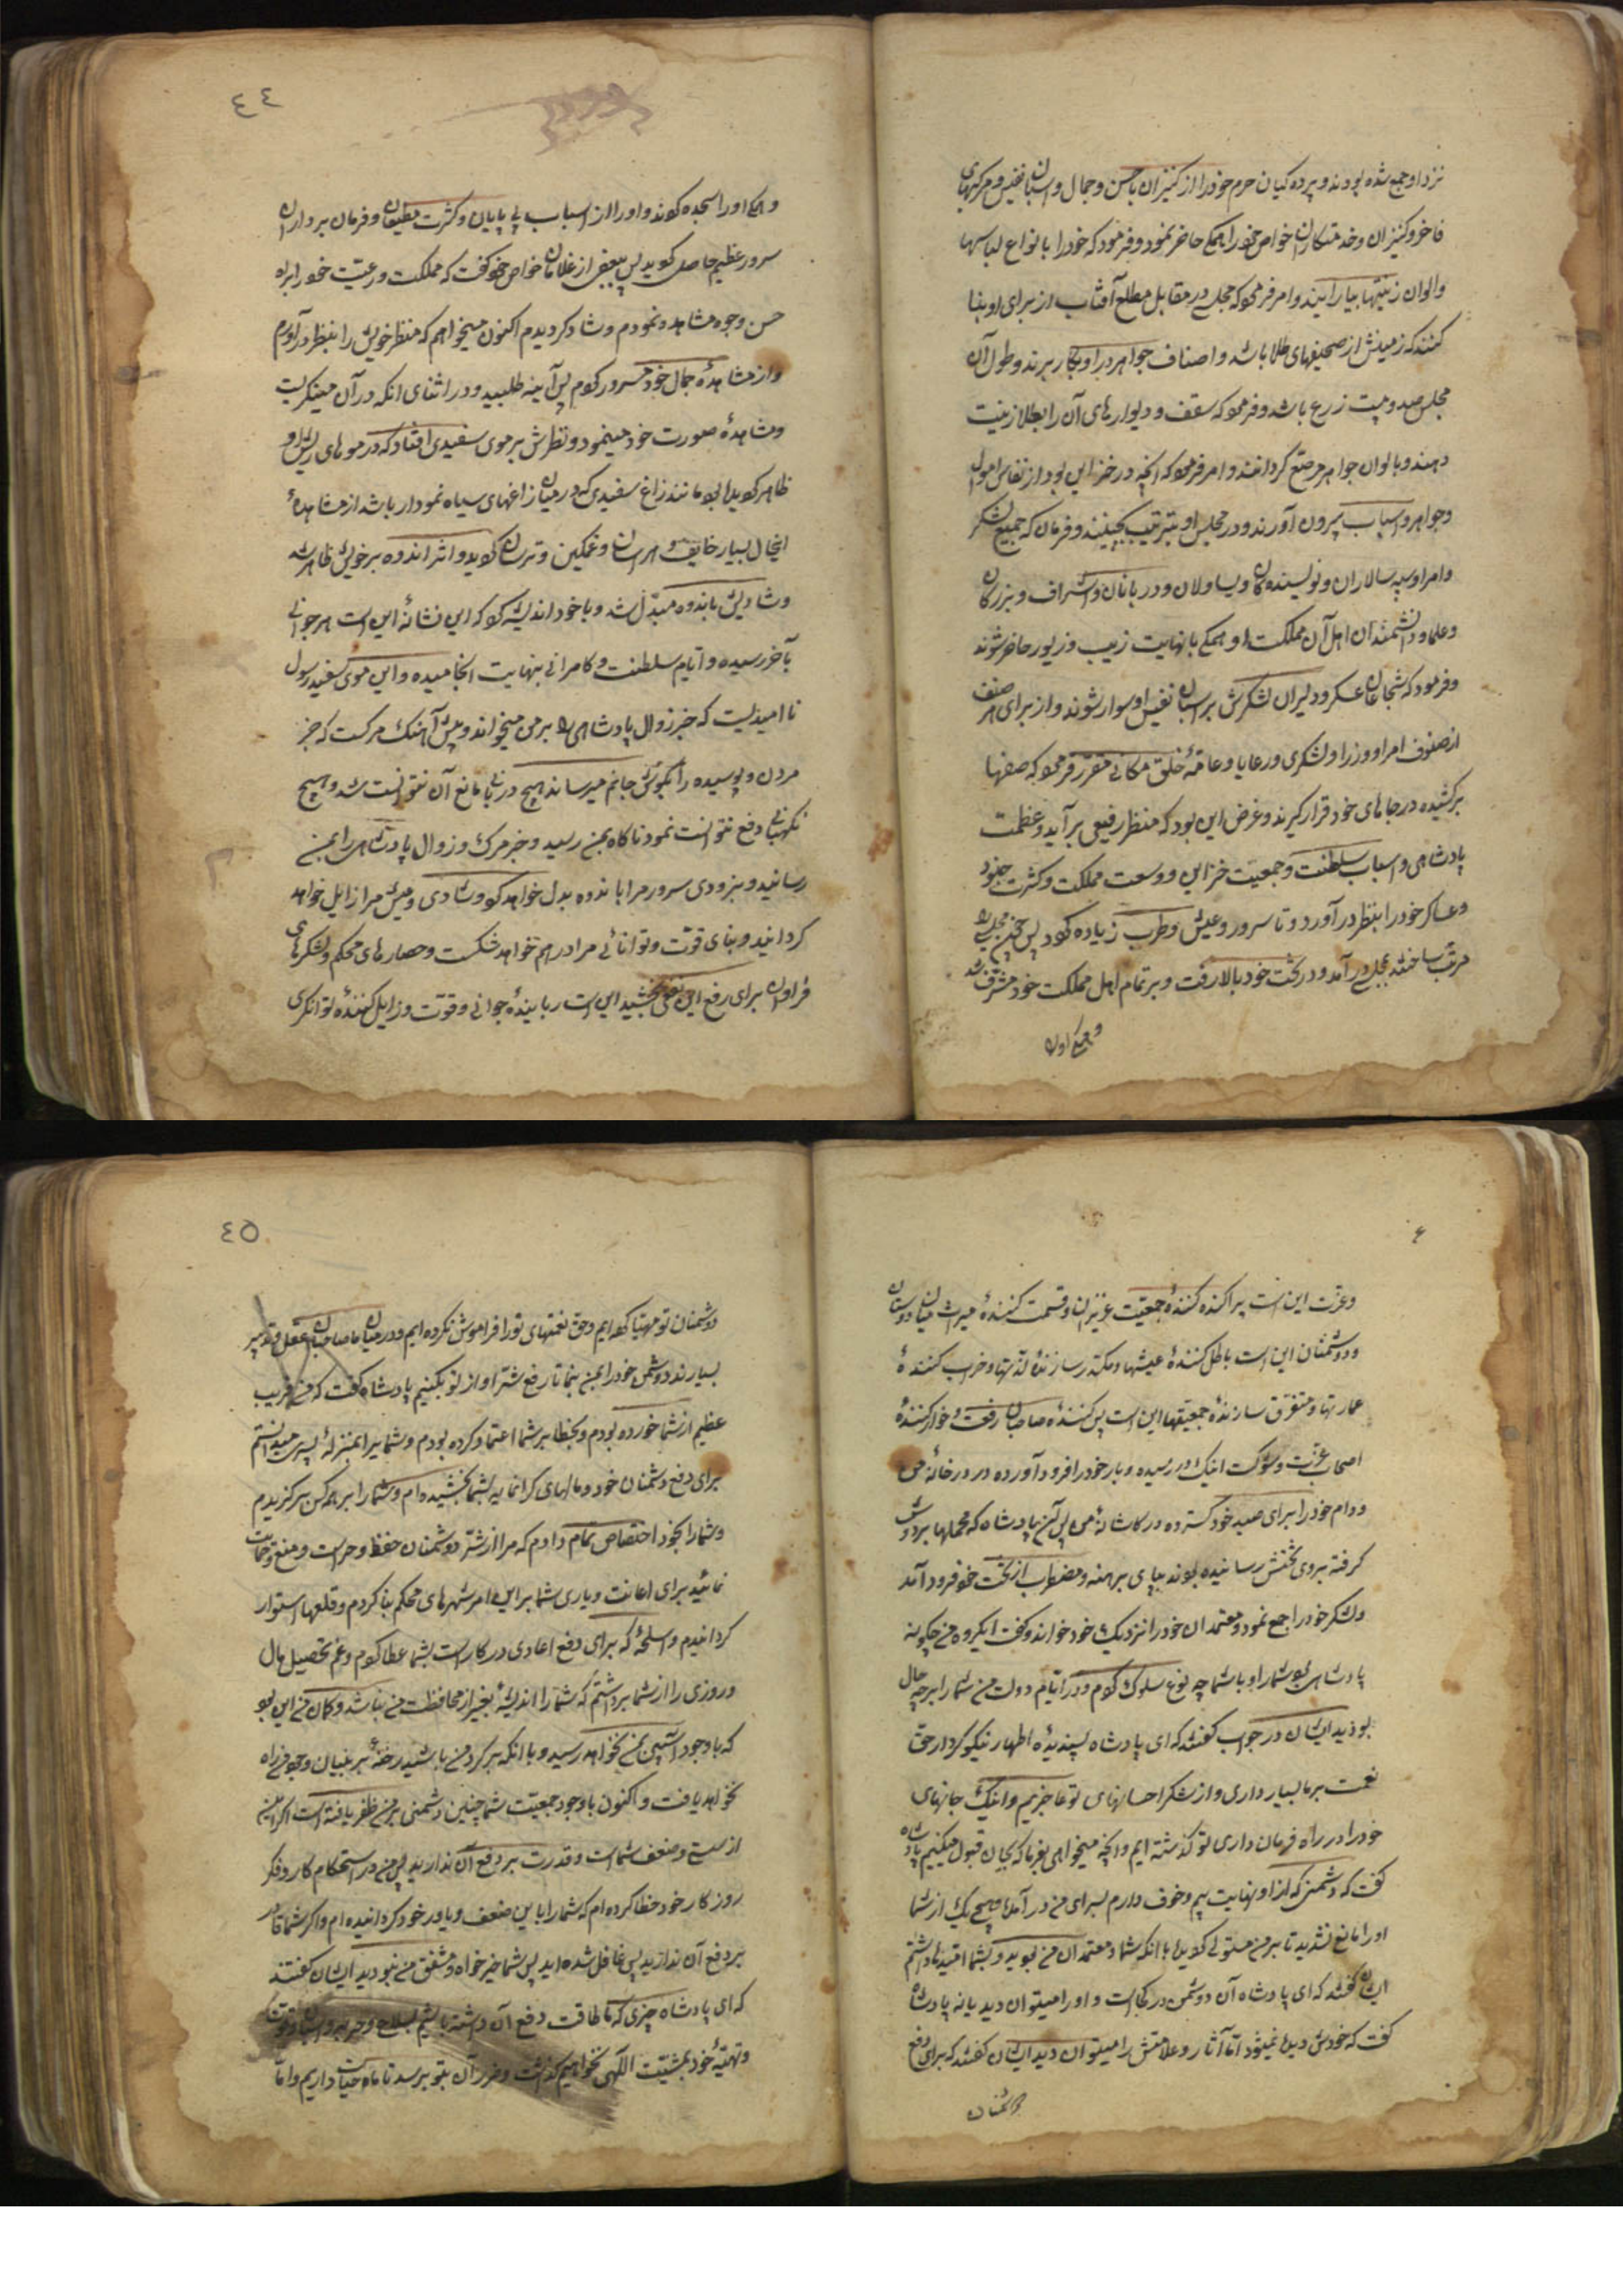 نزد او جمع شده بودند و پرده کیان حرم خود را از کنیزان باحسن و جمال و اسبان نفیس و مرکبهای
فاخر و کنیزان و خدمتکاران خواص خود را همکے حاضر نمود و فرمود که خود را بانواع لباسها
والوان زینتها بیارایند و امر فرمود که مجلسے در مقابل مطلع آفتاب از برای او بنا
کنند که زمینش از صحیفهای طلا باشد و اصناف جواهر در او بکار برند و طول آن
مجلس صد و بیست زرع باشد و فرمود که سقف و دیوارهای آن را بطلا زینت
دهند و بالوان جواهر مرصّع کردانند و امر فرمود که آنچه در خزاین بود از نفایس اموال
وجواهر و اسباب بیرون آورند و در مجلس او بترتیب بچینند و فرمان که جمیع لشکر
وامرا و سپه سالاران و نویسنده کان ویساولان و دربانان و اشراف و بزرکان
وعلما و دانشمندان اهل آن مملکت او همکے بانهایت زیب و زیور حاضر شوند
وفرمود که شجاعان عسکر و دلیران لشکرش بر اسبان نفیس او سوار شوند و از برای هر صنف
از صنوف امرا و وزرا و لشکری و رعایا و عامّهٔ خلق مکانے مقرّر فرمود که صفها
برکشیده در جاهای خود قرار کیرند و غرض این بود که منظر رفیعی برآید و عظمت
پادشاهی و اسباب سلطنت و جمعیّت خزاین و وسعت مملکت و کثرت جنود
وعساکر خود را بنظر درآورد و تا سرور و عیش و طرب زیاده کردد پس چنین مجلسے را
مرتّب ساختند بمجلس درآمد و در تخت خود بالا رفت و بر تمام اهل مملکت خود مشرف شد
وهمکے او را
٤٤
وهمکے او را سجده کردند و او را از اسباب بے پایان و کثرت مطیعان و فرمان برداران
سرور عظیم حاصل کردید پس ببعضی از غلامان خواص خود کفت که مملکت و رعیّت خود را براه
حسن وجوه مشاهده نمودم و شاد کردیدم اکنون میخواهم که منظر خویش را بنظر درآورم
واز مشاهدهٔ جمال خود مسرور کردم پس آینه طلبید و در اثنای انکه در آن مینکریست
ومشاهدهٔ صورت خود مینمود و نظرش بر موی سفیدی افتاد که در موهای ریش او
ظاهر کردیده بود مانند زاغ سفیدی که در میان زاغهای سیاه نمودار باشد از مشاهدهٔ
اینحال بسیار خایف و هراسان و غمکین و ترسان کردید و اثر اندوه بر خویش ظاهر شد
وشادیش باندوه مبدّل شد و با خود اندیشه کرد که این نشانهٔ این است هر جوانے
بآخر رسیده و ایّام سلطنت و کامرانے بنهایت انجامیده و این موی سفید رسول
ناامیدیست که خبر زوال پادشاهی را بر من میخواند و پیش آهنک مرکست که خبر
مردن و پوسیده را بکوش جانم میرساند هیچ دربانے مانع آن نتوانست شد و هیچ
نکهبانے دفع نتوانست نمود ناکاه بمن رسید و خبر مرک و زوال پادشاهی را بمن
رسانید و بزودی سرور مرا باندوه بدل خواهد کرد و شادی و عیش مرا زایل خواهد
کردانید و بنای قوّت و توانائے مرا در هم خواهد شکست و حصارهای محکم و لشکرهای
فراوان برای رفع این نفعی نبخشید این است ربایندهٔ جوانے و قوّت و زایل کنندهٔ توانکری
وعزت این است پراکنده کنندهٔ جمعیّت عزیزان و قسمت کنندهٔ میراث میان دوستان
ودشمنان این است باطل کنندهٔ عیشها و مکدّر سازندهٔ لذتها و خراب کنندهٔ
عمارتها و متفرّق سازندهٔ جمعیتها این است پس کنندهٔ صاحبان رفعت و خوار کنندهٔ
اصحاب عزّت و شوکت اینک در رسیده و بار خود را فرود آورده در در خانهٔ من
ودام خود را برای صید خود کسترده در کاشانهٔ من پس آن پادشاه که محملها بر دوش
کرفته بروی تختش رسانیده بودند بپای برهنه و مضطرب از تخت خود فرود آمد
ولشکر خود را جمع نمود و معتمدان خود را نزدیک خود خواند و کفت ایکروه من چکونه
پادشاهی بودم شما را و با شما چه نوع سلوک کردم و در ایّام دولت من شما را بر چه حال
بودید ایشان در جواب کفتند که ای پادشاه پسندیدهٔ اطهار نیکو کردار حقّ
نعمت بر ما بسیار داری و از شکر احسانهای تو عاجزیم و اینک جانهای
خود را در راه فرمان داری تو کذشته ایم و آنچه میخواهی بفرما که بجان قبول میکنیم پادشاه
کفت که دشمنی که از او نهایت بیم و خوف دارم بسرای من درآمده و هیچ یک از شما
او را مانع نشدید تا بر من مستولے کردیده با انکه شما معتمدان من بودید و بشما امیدها داشتم
ایشان کفتند که ای پادشاه آن دشمن در کجاست و او را میتوان دید یا نه پادشاه
کفت که خودش دیده نمیشود امّا آثار و علامتش را میتوان دید ایشان کفتند که برای دفع
دشمنان
٤٥
دشمنان تو مهیّا کرده ایم و حق نعمتهای تو را فراموش نکرده ایم و در میان ما صاحبان عقل و تدبیر
بسیارند دشمن خود را بمن بنما تا رفع شرّ او از تو بکنیم پادشاه کفت که من فریب
عظیم از شما خورده بودم و بخطا بر شما اعتماد کرده بودم و شما را بمنزلهٔ سپری میدانستم
برای دفع دشمنان خود و مالهای کرانمایه بشما بخشیده ام و شما را بر همه کس برکزیدم
وشما را بخود اختصاص تمام دادم که مرا از شرّ دشمنان حفظ و حراست و منع و حمایت
نمائید برای اعانت و یاری شما بر این امر شهرهای محکم بنا کردم و قلعها استوار
کردانیدم و اسلحهٔ که برای دفع اعادی در کار است بشما عطا کردم و غم تحصیل مال
وروزی را از شما برداشتم که شما را اندیشهٔ بغیر از محافظت من نباشد و کمان من این بود
که با وجود آسیبی بمن نخواهد رسید و با انکه بر کرد من باشید رخنهٔ بر بنیان وجود من راه
نخواهد یافت و اکنون با وجود جمعیّت شما چنین دشمنی بر من ظفر یافته است اکر این
از سستی و ضعف شماست و قدرت بر دفع آن ندارید پس من در استحکام کار و فکر
روزکار خود خطا کرده ام که شما را با این ضعف و یاور خود کردانیده ام و اکر شما قادر
بر دفع آن ندارید پس غافل شده اید پس شما خیرخواه و مشفق من نبودید ایشان کفتند
که ای پادشاه چیزی که ما طاقت دفع آن داشته باشیم بسلاح و حربه و اسباب و قوّت
وتهیّهٔ خود بمشیّت اللّهی نخواهیم کذاشت و ضرر آن بتو برسد تا ما حیات داریم و امّا